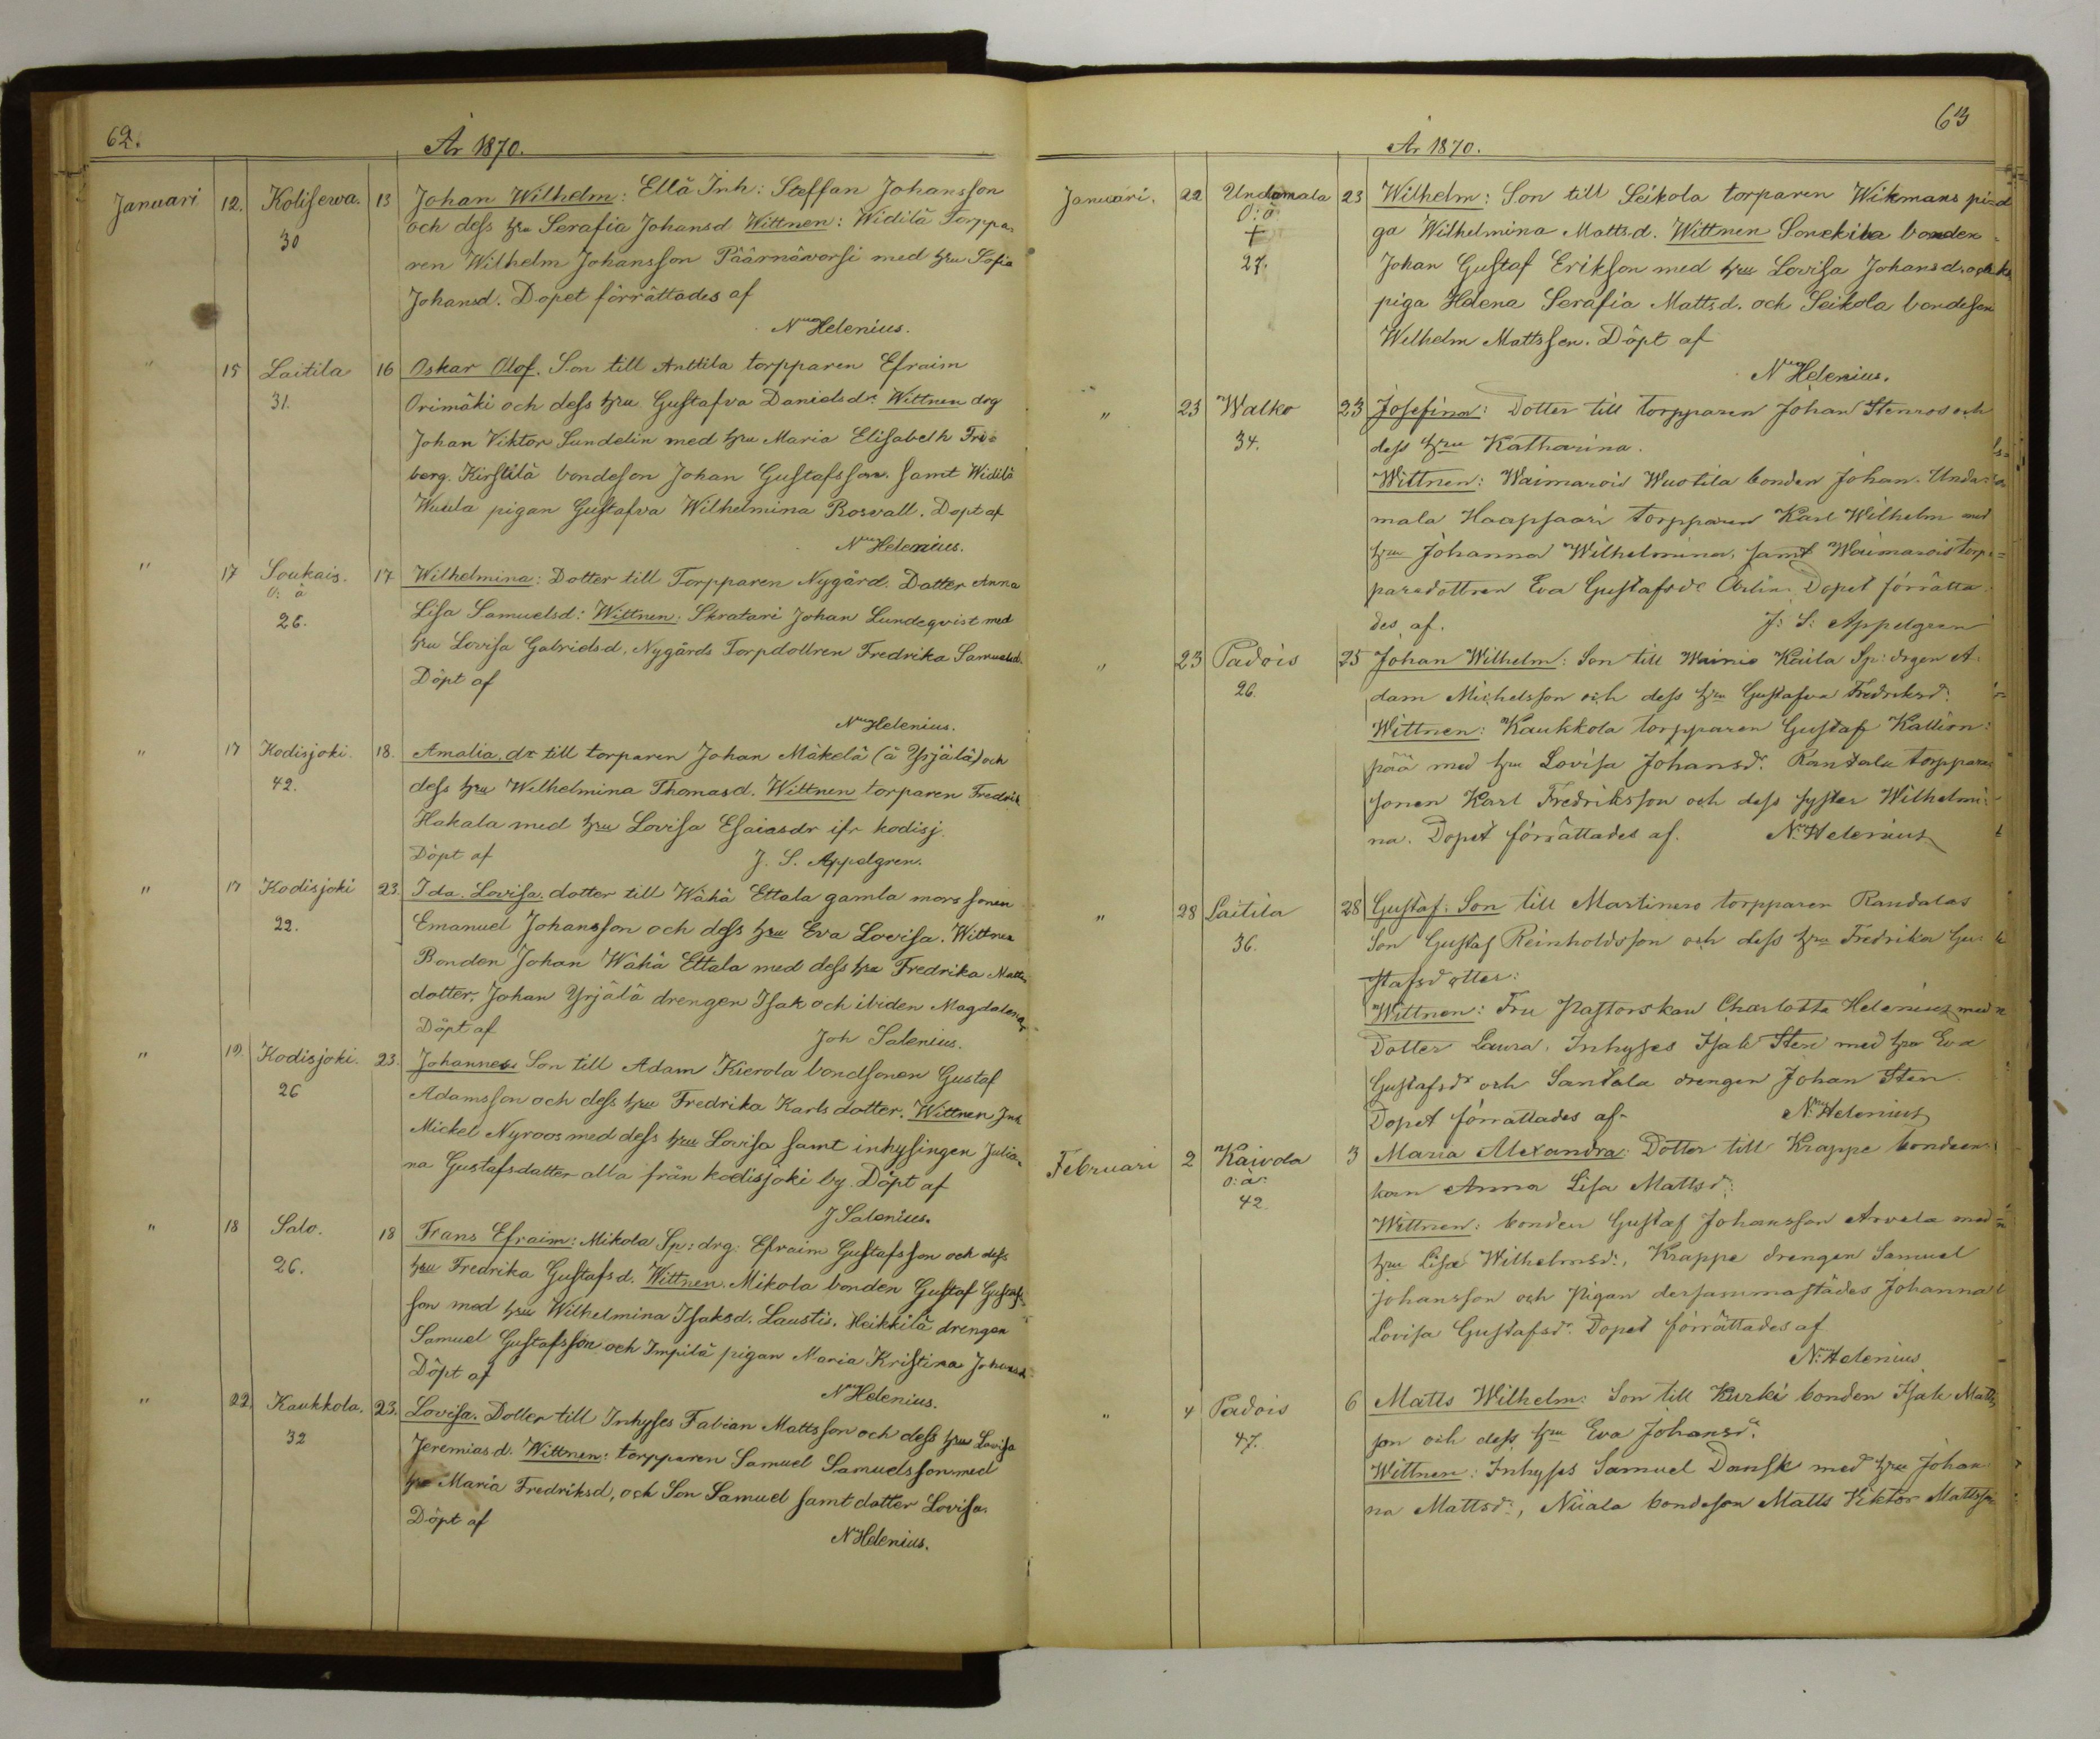 62.
År 1870.
Januari 12. Kolisewa. 13 Johan Wilhelm: Ellä Inh: Steffan Johansson
30 och dess hru Serafia Johansd Wittnen: Widilä Torppa-
ren Wilhelm Johansson Päärnävorsi med hru Sofia
Johansd. Dopet förrättades af
Nus Helenius.
" 15 Laitila 16 Oskar Olof. Son till Anttila torpparen Efraim
31. Orimäki och dess hru Gustafva Danielsdr. Wittnen drg
Johan Viktor Sundelin med hru Maria Elisabeth Fri=
berg. Kirstilä bondeson Johan Gustafsson. samt Widilä
Wuula pigan Gustafva Wilhelmina Rosvall. Döpt af
Nus Helenius.
" 17 Soukais. 17 Wilhelmina: Dotter till Torpparen Nygård. Dotter Anna
O: ä
26. Lisa Samuelsd: Wittnen: Skratari Johan Lundeqvist med
hru Lovisa Gabrielsd, Nygårds Torpdottren Fredrika Samuelsd.
Döpt af
Nus Helenius.
" 17 Kodisjoki. 18. Amalia, dr till torparen Johan Mäkelä (ä Yrjälä) och
42. dess hru Wilhelmina Thomasd. Wittnen torparen Fredrik
Hakala med hru Lovisa Esaiasdr ifr kodisj.
Döpt af J. S. Appelgren.
" 17 Kodisjoki 23. Ida. Lovisa. dotter till Wähä Ettala gamla mors sonen
22. Emanuel Johansson och dess hru Eva Lovisa. Wittnen
Bonden Johan Wähä Ettala med dess hru Fredrika Matts
dotter, Johan Yrjälä drengen Isak och ibiden Magdalena,
Döpt af Joh Salenius.
" 19. Kodisjoki. 23. Johannes Son till Adam Kierola bondsonen Gustaf
26 Adamsson och dess hru Fredrika Karls dotter. Wittnen Inh
Mickel Nyroos med dess hru Lovisa samt inhysingen Julia-
na Gustafsdotter alla från kodisjoki by. Döpt af
J Salenius.
" 18 Salo. 18 Frans Efraim: Mikola Sp: drg: Efraim Gustafsson och dess
26. hru Fredrika Gustafsd. Wittnen. Mikola bonden Gustaf Gustafs-
son med hru Wilhelmina Isaksd. Laustis. Heikkilä drengen
Samuel Gustafsson och Impilä pigan Maria Kristina Johansd
Döpt af
Nus Helenius.
" 22. Kaukkola. 23. Lovisa. Dotter till Inhyses Fabian Mattsson och dess hru Lovisa
32 Jeremiasd. Wittnen: torpparen Samuel Samuelsson med
hru Maria Fredriksd, och Son Samuel samt dotter Lovisa.
Döpt af
N Helenius.
63
År 1870.
Januari. 22 Undamala 23 Wilhelm: Son till Seikola torparen Wikmans pi=
O: ä
+ ga Wilhelmina Mattsd. Wittnen Sonckila bonden
27. Johan Gustaf Erikson med hru Lovisa Johansd. och
piga Helena Serafia Mattsd. och Seikola bondeson
Wilhelm Mattsson. Döpt af
Nus Helenius.
" 23 Walko 23 Josefina: Dotter till Torpparen Johan Stenros och
34. dess hru Katharina.
Wittnen: Waimarois Wuotila bonden Johan. Unda=
mala Haapsaari torpparen Karl Wilhelm med
hru Johanna Wilhelmina, samt Waimarois torp=
paredottren Eva Gustafsdr Arlin. Dopet förrätta
des af. J: S: Appelgren
" 23 Padois 25 Johan Wilhelm: Son till Wainio Kaila Sp: drgen A-
26. dam Michelsson och dess hru Gustafva Fredriksdr.
Wittnen: Kaukkola torpparen Gustaf Kallion=
pää med hru Lovisa Johansdr. Randala torppare
sonen Karl Fredriksson och dess syster Wilhelmi=
na. Dopet förrättades af. Nus Helenius
" 28 Laitila 28 Gustaf: Son till Martinero torpparen Randalas
36. Son Gustaf Reinholdsson och dess hru Fredrika Gu=
stafsdotter:
Wittnen: Fru Pastorskan Charlotta Helenius med
Dotter Laura. Inhyses Isak Sten med hru Eva
Gustafsdr och Santala drengen Johan Sten.
Dopet förrättades af. Nus Helenius
Februari 2 Kaivola 3 Maria Alexandra: Dotter till Krappe bondeen=
O: ä.
42. kan Anna Lisa Mattsd:
Wittnen: bonden Gustaf Johansson Arvela med
hru Lisa Wilhelmsd:, Krappe drengen Samuel
Johansson och Pigan dersammastädes Johanna
Lovisa Gustafsdr. Dopet förrättades af
Nus Helenius
" 4 Padois 6 Matts Wilhelm: Son till Kurki bonden Isak Matts
47. son och dess hru Eva Johansdr.
Wittnen: Inhyses Samuel Dansk med hru Johan
na Mattsd:, Niiala bondeson Matts Viktor Mattsson